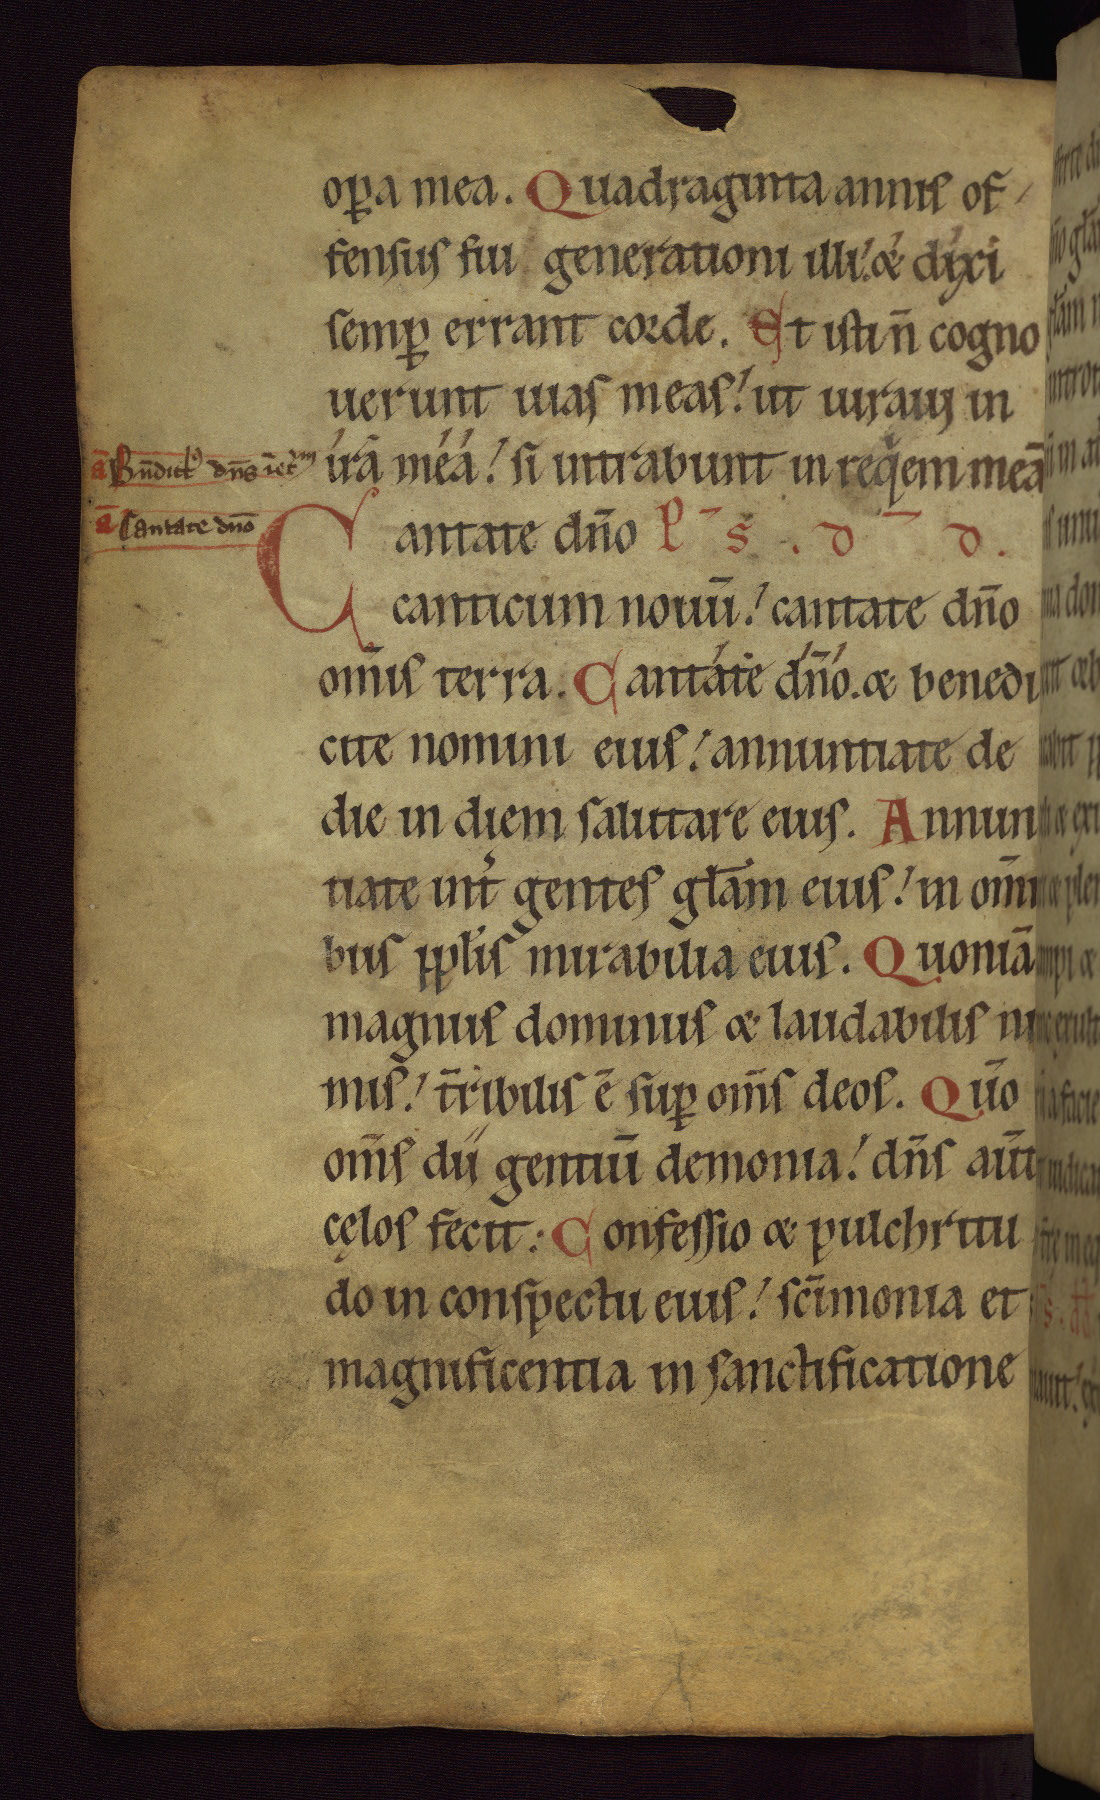 op̲a mea. Quadraginta annis of-
fensus fui generationi illi! & dixi
semp̲ errant corde. Et isti n̄ cogno
uerunt uias meas! ut iuraui in
irā mea! si intrabunt in req̇em meā
ā Bn̄dict⁹ dn̄s īet̄m
ā Cantate dn̄o
Cantate dn̄o P̄ s̄ . D̄ D.
canticum nouū! cantate dn̄o
om̄is terra. Cantate dn̄o. & benedi
cite nomini eius! annuntiate de
die in diem salutare eius. Annun
tiate int̓ gentes gl̄am eius! in om̄i
bus pp̄lis mirabilia eius. Quoniā
magnus dominus & laudabilis ni
mis! t̄ribilis ē sup̲ om̄s deos. Qūo
om̄s dij gentiū demonia! dn̄s aūt
cęlos fecit. Confessio & pulchritu
do in conspectu eius! sc̄imonia et
magnificentia in sanctificatione